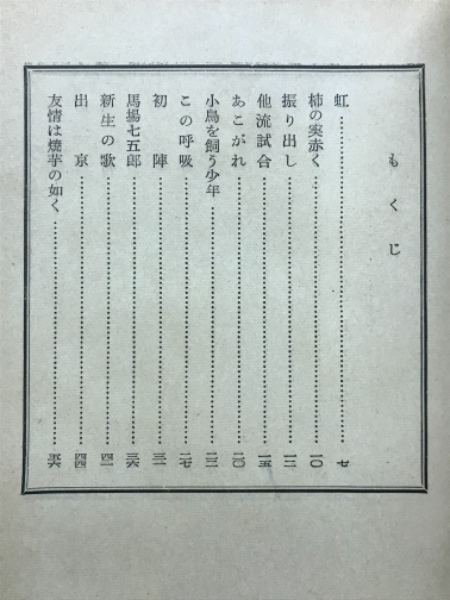 もくじ
虹……七
柿の実赤く……一〇
振り出し……一二
他流試合……一五
あこがれ……二〇
小鳥を飼う少年……二二
この呼吸……二七
初陣……三一
馬場七五郎……三六
新生の歌……四一
出京……四四
友情は焼芋の如く……五六